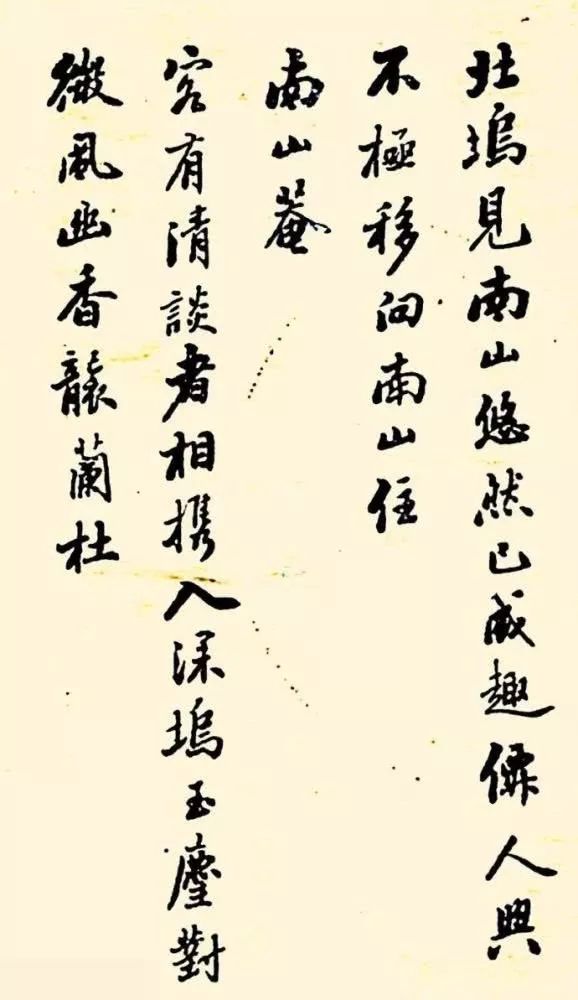 北塢見南山悠然已成趣僊人興
不極移向南山住
南山菴
客有清談者相携入深塢玉麈對
微風幽香襲蘭杜